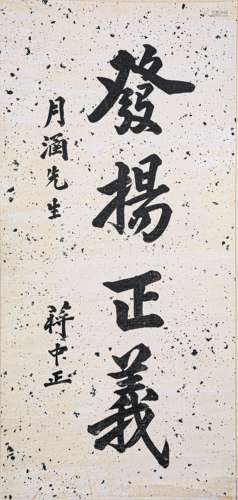 月涵先生
發揚正義
蔣中正